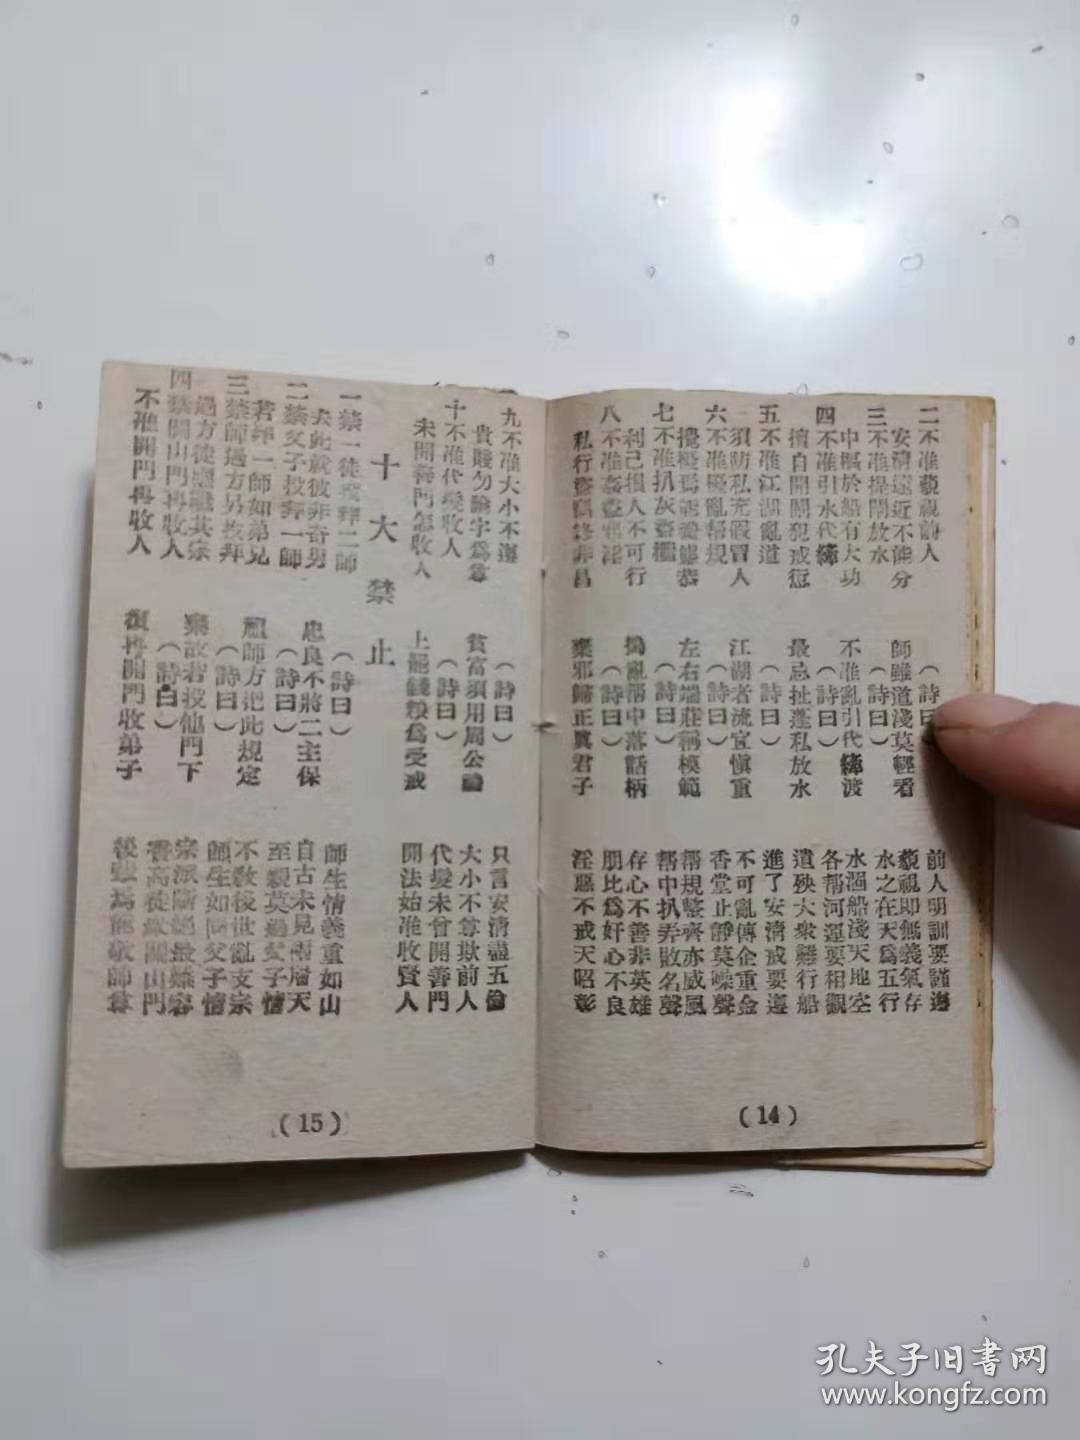 二不准藐視前人
(詩曰)
前人明訓要謹遵
安清遠近不能分
師雖道淺莫輕看
藐視即無義氣存
三不准提閘放水
(詩曰)
水之在天為五行
中樞於船有大功
不准亂引代縴渡
水涸船淺天地空
四不准引水代縴
(詩曰)
各幫河運要相觀
擅自開關犯戒愆
最忌扯蓬私放水
遺殃大衆難行船
五不准江湖亂道
(詩曰)
進了安清戒要遵
須防私充假冒人
江湖者流宜慎重
不可亂傳企重金
六不准擾亂幫規
(詩曰)
香堂止靜莫噪聲
左右端莊稱模範
幫規整齊亦威風
七不准扒灰盜攏
(詩曰)
幫中扒弄敗名聲
利己損人不可行
搗亂幫中落話柄
存心不善非英雄
八不准姦盜邪淫
(詩曰)
朋比為奸心不良
私行盜竊終非昌
棄邪歸正真君子
淫惡不戒天昭彰
(14)
九不准大小不遵
(詩曰)
只言安清盡五倫
貴賤勿論字為尊
貧富須用周公論
大小不尊欺前人
十不准代髮收人
(詩曰)
代髮未曾開善門
未開善門怎收人
上罷錢粮為受戒
開法始准收賢人
十大禁止
一禁一徒投拜二師
(詩曰)
師生情義重如山
去此就彼非奇男
忠良不將二主保
自古未見兩層天
二禁父子投拜一師
(詩曰)
至親莫過父子情
若拜一師如弟兄
祖師方把此規定
不教後世亂支宗
三禁師過方另投拜
(詩曰)
師生如同父子情
過方徒繼其宗
棄故若投他門下
宗派斷絕最難容
四禁關山門再收人
香高徒敬關山門
不准開門再收人
復再開門收弟子
後雖為能敬師尊
(15)
孔夫子旧書网
www.kongfz.com